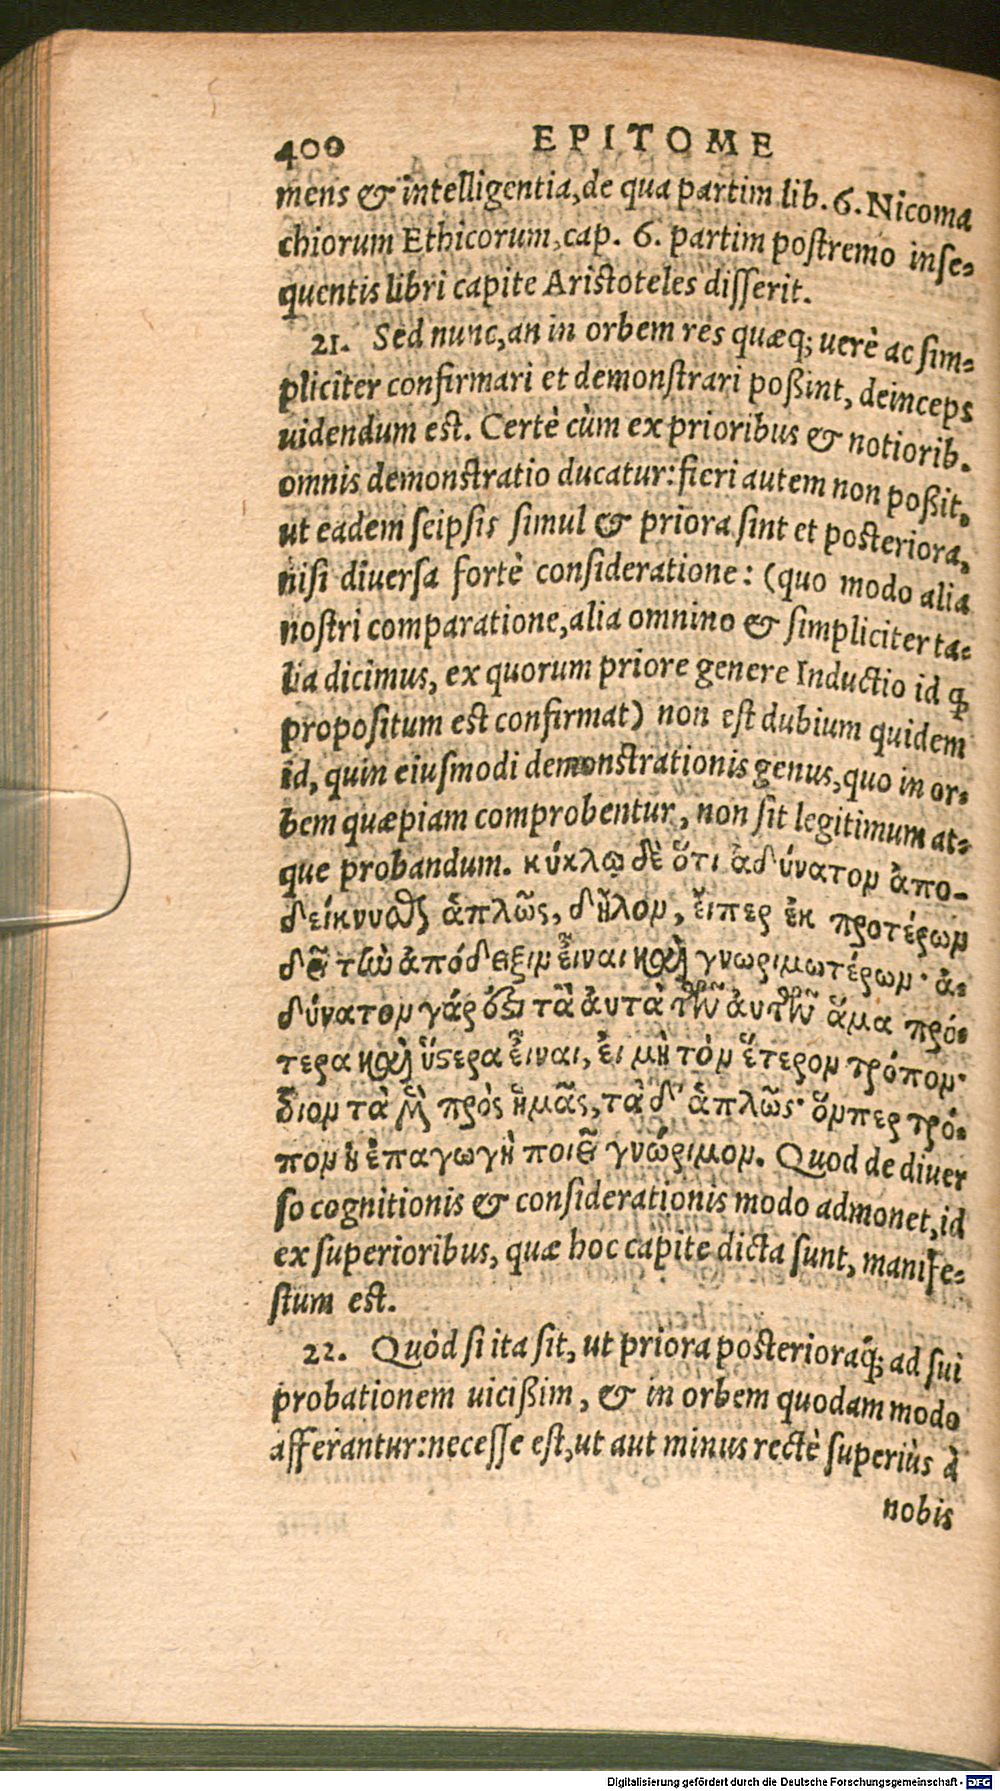 400 EPITOME
mens & intelligentia, de qua partim lib. 6. Nicoma
chiorum Ethicorum, cap. 6. partim postremo inse-
quentis libri capite Aristoteles disserit.
21. Sed nunc, an in orbem res quæq; uerè ac sim-
pliciter confirmari et demonstrari poßint, deinceps
uidendum est. Certè cùm ex prioribus & notiorib.
omnis demonstratio ducatur: fieri autem non poßit,
ut eadem seipsis simul & priora sint et posteriora,
nisi diuersa fortè consideratione: (quo modo alia
nostri comparatione, alia omnino & simpliciter ta-
lia dicimus, ex quorum priore genere Inductio id ꝙ
propositum est confirmat) non est dubium quidem
id, quin eiusmodi demonstrationis genus, quo in or-
bem quæpiam comprobentur, non sit legitimum at-
que probandum. κύκλῳ δὲ ὅτι ἀδύνατον ἀπο-
δείκνυσθαι ἁπλῶς, δῆλον, ἔιπερ ἐκ προτέρων
δεῖ τὴν ἀπόδειξιν εἶναι καὶ γνωριμωτέρων· ἀ-
δύνατον γάρ ὅστι τὰ ἀυτὰ τῶν ἀυτῶν ἅμα πρό-
τερα καὶ ὕστερα εἶναι, ἐι μὴ τὸν ἕτερον τρόπον·
διον τὰ μὲν πρὸς ἡμᾶς, τὰ δ' ἁπλῶς· ὅνπερ τρό-
πον ἡ ἐπαγωγὴ ποιεῖ γνώριμον. Quod de diuer
so cognitionis & considerationis modo admonet, id
ex superioribus, quæ hoc capite dicta sunt, manife-
stum est.
22. Quòd si ita sit, ut priora posterioraq́; ad sui
probationem uicißim, & in orbem quodammodo
afferantur: necesse est, ut aut minus rectè superiùs à
nobis
Digitalisierung gefördert durch die Deutsche Forschungsgemeinschaft - DFG